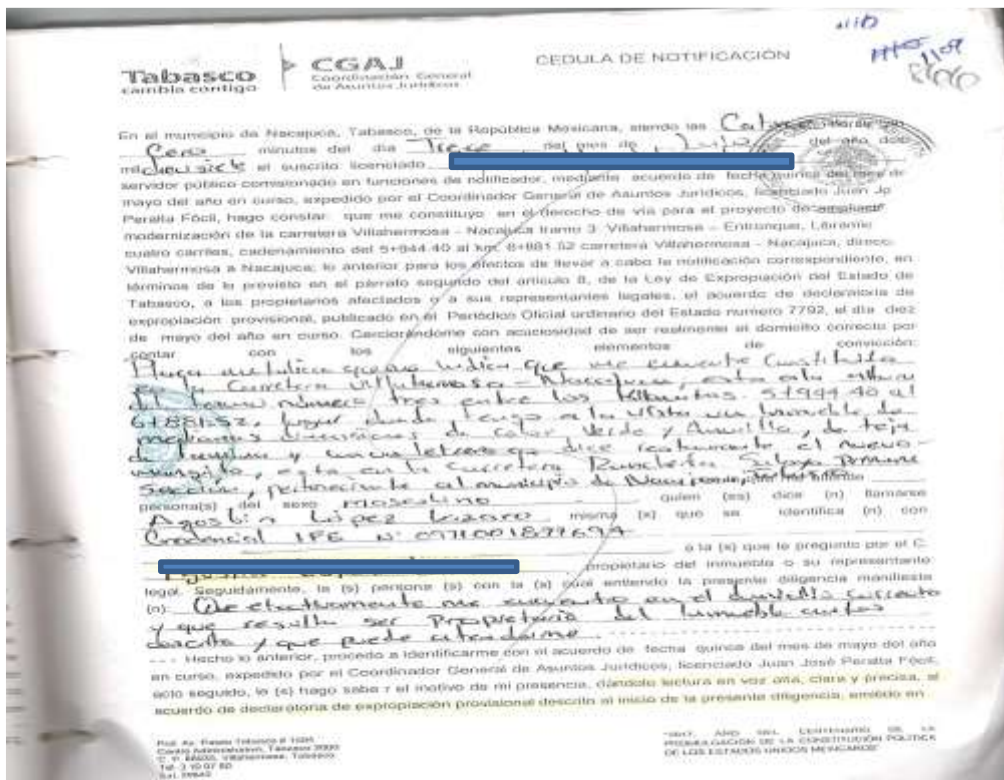 CEDULA DE NOTIFICACIÓN
Tabasco
cambia contigo
CGAJ
Coordinación General
de Asuntos Jurídicos
En el municipio de Nacajuca, Tabasco, de la República Mexicana, siendo las
Cero minutos del dia Trece del mes de Julio del año dos
mil diecisiete el suscrito licenciado
servidor público comisionado en funciones de notificador, mediante acuerdo de fecha quince del mes de
mayo del año en curso, expedido por el Coordinador General de Asuntos Jurídicos, licenciado Juan Jo
Peralta Fócil, hago constar que me constituyo en el derecho de vía para el proyecto de ampliación
modernización de la carretera Villahermosa - Nacajuca tramo 3 Villahermosa - Entronque, Libramie
cuatro carriles, cadenamiento del 5+944.40 al km. 6+881.52 carretera Villahermosa - Nacajuca, direcc
Villahermosa a Nacajuca; lo anterior para los efectos de llevar a cabo la notificación correspondiente, en
términos de lo previsto en el párrafo segundo del artículo 8, de la Ley de Expropiación del Estado de
Tabasco, a los propietarios afectados o a sus representantes legales, el acuerdo de declaratoria de
expropiación provisional, publicado en el Periódico Oficial ordinario del Estado numero 7792, el día diez
de mayo del año en curso. Cerciorándome con acuciosidad de ser realmente el domicilio correcto por
contar con los siguientes elementos de convicción:
que me indica que me encuentro Constituido
en la Carretera Villahermosa - Nacajuca, esta a la altura
del tramo número tres entre los Kilometros. 5+944.40 al
6+881.52, lugar donde tengo a la vista un inmueble de
medianas dimensiones de color Verde y Amarillo, de teja
y un letrero que dice restaurante el nuevo
, esta en la Carretera Ranchería Primera
Sección, perteneciente al municipio de Nacajuca,
persona(s) del sexo masculino quien (es) dice (n) llamarse
Agustin López misma (s) que se identifica (n) con
Credencial IFE N°
a la (s) que le pregunto por el C.
propietario del inmueble o su representante
legal. Seguidamente, la (s) persona (s) con la (s) cual entiendo la presente diligencia manifiesta
(n): Que efectivamente me encuentro en el domicilio correcto
y que resulta ser Propietario del Inmueble antes
descrito y que puede atenderme
- - - Hecho lo anterior, procedo a identificarme con el acuerdo de fecha quince del mes de mayo del año
en curso, expedido por el Coordinador General de Asuntos Jurídicos, licenciado Juan José Peralta Fócil,
acto seguido, le (s) hago sabe r el motivo de mi presencia, dándole lectura en voz alta, clara y precisa, al
acuerdo de declaratoria de expropiación provisional descrito al inicio de la presente diligencia, emitido en
Centro Administrativo, Tabasco 2000
Villahermosa, Tabasco
"2017, AÑO DEL CENTENARIO DE LA
PROMULGACIÓN DE LA CONSTITUCIÓN POLÍTICA
DE LOS ESTADOS UNIDOS MEXICANOS"